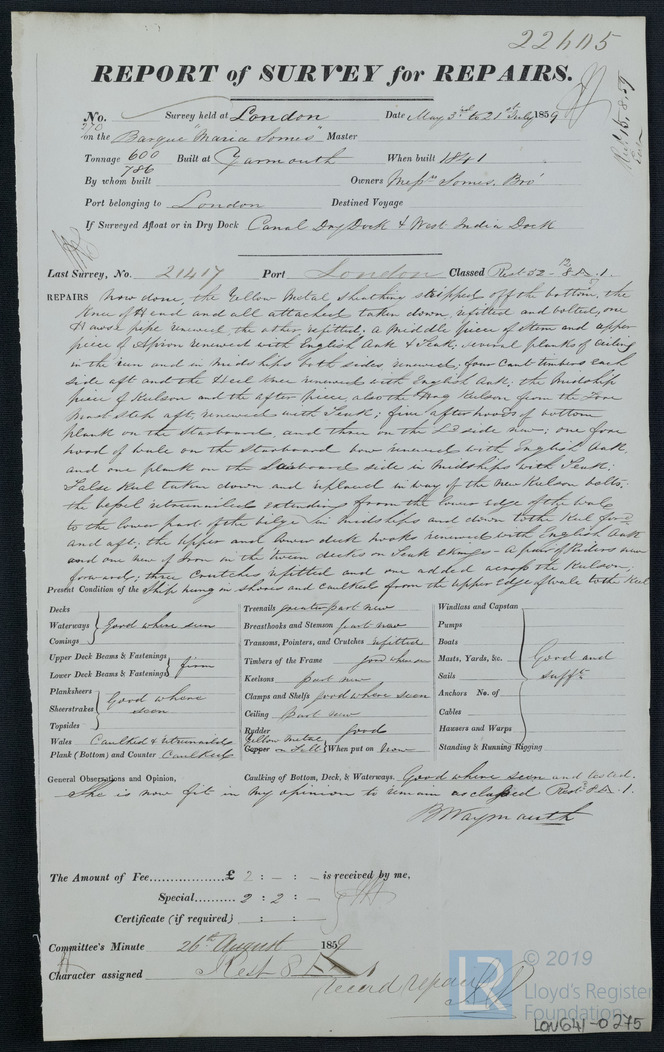 22605
REPORT of SURVEY for REPAIRS.
No. Survey held at London Date May 3rd to 21st July 1859
270
on the Barque "Maria Somes" Master
Tonnage 600 Built at Yarmouth When built 1841
786
By whom built Owners Messrs Somes, Bro
Port belonging to London Destined Voyage
If Surveyed Afloat or in Dry Dock Canal Dry Dock & West India Dock
Last Survey, No. 21417 Port London Classed Rest 52
REPAIRS Now done, the Yellow Metal sheathing stripped off the bottom, the
Knee of Head and all attached taken down, refitted and bolted, one
Hawse pipe renewed, the other refitted; a middle piece of stem and upper
piece of Apron renewed with English Oak & Teak; several planks of ceiling
in the run and in midships both sides, renewed; four Cant timbers each
side aft and the Heel Knee renewed with English Oak; the Midship
piece of Kelson and the after piece, also the Kelson from the Fore
Mast step aft, renewed with Teak; five afterhoods of bottom
plank on the starboard, and three on the Ld side new; one fore
hood of wale on the Starboard bow renewed with English Oak,
and one plank on the Starboard side in midships with Teak;
False Keel taken down and replaced in way of the new Kelson bolts;
the vessel retreenailed extending from the lower edge of the wale
to the lower part of the bilge in midships and down to the Keel ford
and aft; the upper and lower deck hooks renewed with English Oak
and one new of Iron in the tween decks on Teak - A pair of Riders new
forward; three Crutches refitted and one added across the Kelson;
Present Condition of the Ship hung on shores and caulked from the upper edge of wale to the Keel
Decks
Waterways } Good where seen
Comings
Upper Deck Beams & Fastenings
Lower Deck Beams & Fastenings } firm
Planksheers
Sheerstrakes } Good where seen
Topsides
Wales Caulked & retreenailed
Plank (Bottom) and Counter Caulked
Treenails greater part new
Breasthooks and Stemson part new
Transoms, Pointers, and Crutches refitted
Timbers of the Frame good where seen
Keelsons part new
Clamps and Shelfs good where seen
Ceiling Part new
Rudder good
Yellow Metal
Copper on Felt } When put on Now
Windlass and Capstan
Pumps
Boats
Masts, Yards, &c. Good and
Sails suffts
Anchors No. of
Cables
Hausers and Warps
Standing & Running Rigging
General Observations and Opinion, Caulking of Bottom, Deck, & Waterways. Good where seen and tested.
She is now fit in my opinion to remain as classed Rest
B Waymouth
The Amount of Fee £ 2 : - : - is received by me,
Special 2 : 2 : -
Certificate (if required) : :
Committee's Minute 26th August 1859
Character assigned Rest 8
record repairs
© 2019
LR
Lloyd's Register
Foundation
LON641-0275